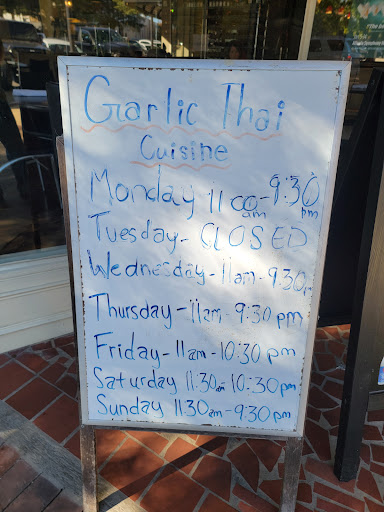 Garlic Thai
Cuisine
Monday 11:00am-9:30pm
Tuesday- CLOSED
Wednesday-11am-9:30p
Thursday-11am-9:30pm
Friday-11am-10:30pm
Saturday 11:30am-10:30pm
Sunday 11:30am-9:30pm